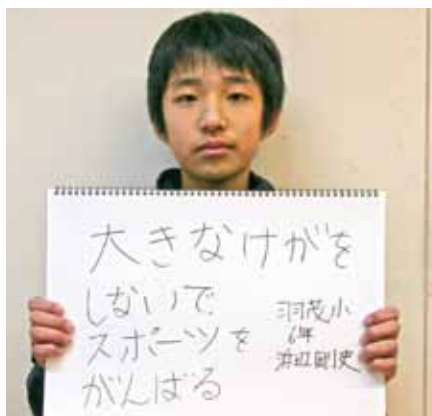 大きなけがを
しないで
スポーツを
がんばる
羽茂小
6年
浜辺剛史